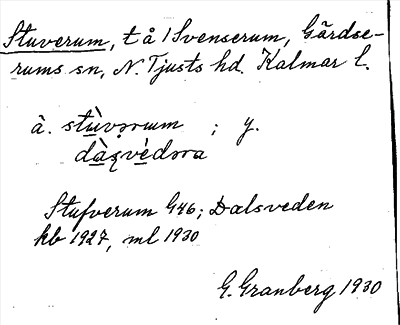 Stuverum, t å 1 Svenserum, Gärdse-
rums sn, N. Tjusts hd. Kalmar l.
à. stùvərum ; y.
dàʂvèdəra
Stufverum G46; Dalsveden
kb 1927, ml 1930
G. Granberg 1930